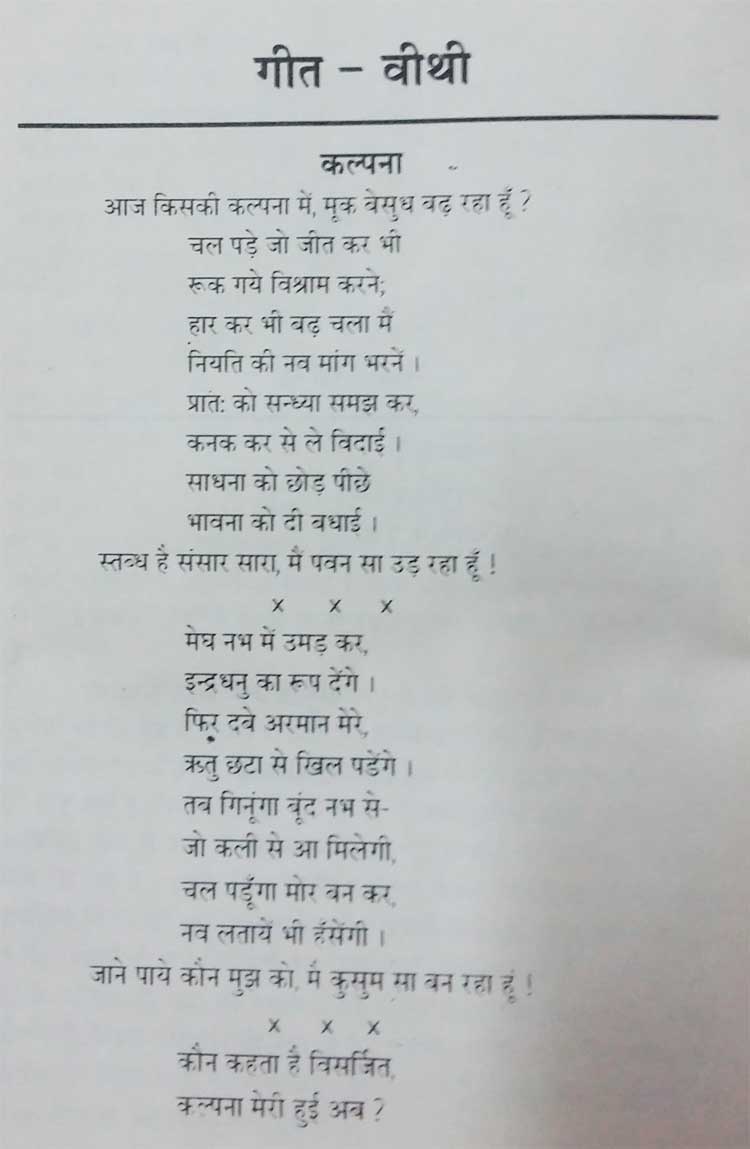 गीत – वीथी
कल्पना
आज किसकी कल्पना में, मूक बेसुध बढ़ रहा हूँ ?
चल पड़े जो जीत कर भी
रूक गये विश्राम करने;
हार कर भी बढ़ चला मैं
नियति की नव मांग भरनें ।
प्रातः को सन्ध्या समझ कर,
कनक कर से ले विदाई ।
साधना को छोड़ पीछे
भावना को दी बधाई ।
स्तब्ध है संसार सारा, मैं पवन सा उड़ रहा हूँ !
x x x
मेघ नभ में उमड़ कर,
इन्द्रधनु का रूप देंगे ।
फिर दबे अरमान मेरे,
ऋतु छटा से खिल पडेंगे ।
तब गिनूंगा बूंद नभ से-
जो कली से आ मिलेगी,
चल पडूँगा मोर बन कर,
नव लतायें भी हँसेंगी ।
जाने पाये कौन मुझ को, मै कुसुम सा बन रहा हूं !
x x x
कौन कहता है विसर्जित,
कल्पना मेरी हुई अब ?